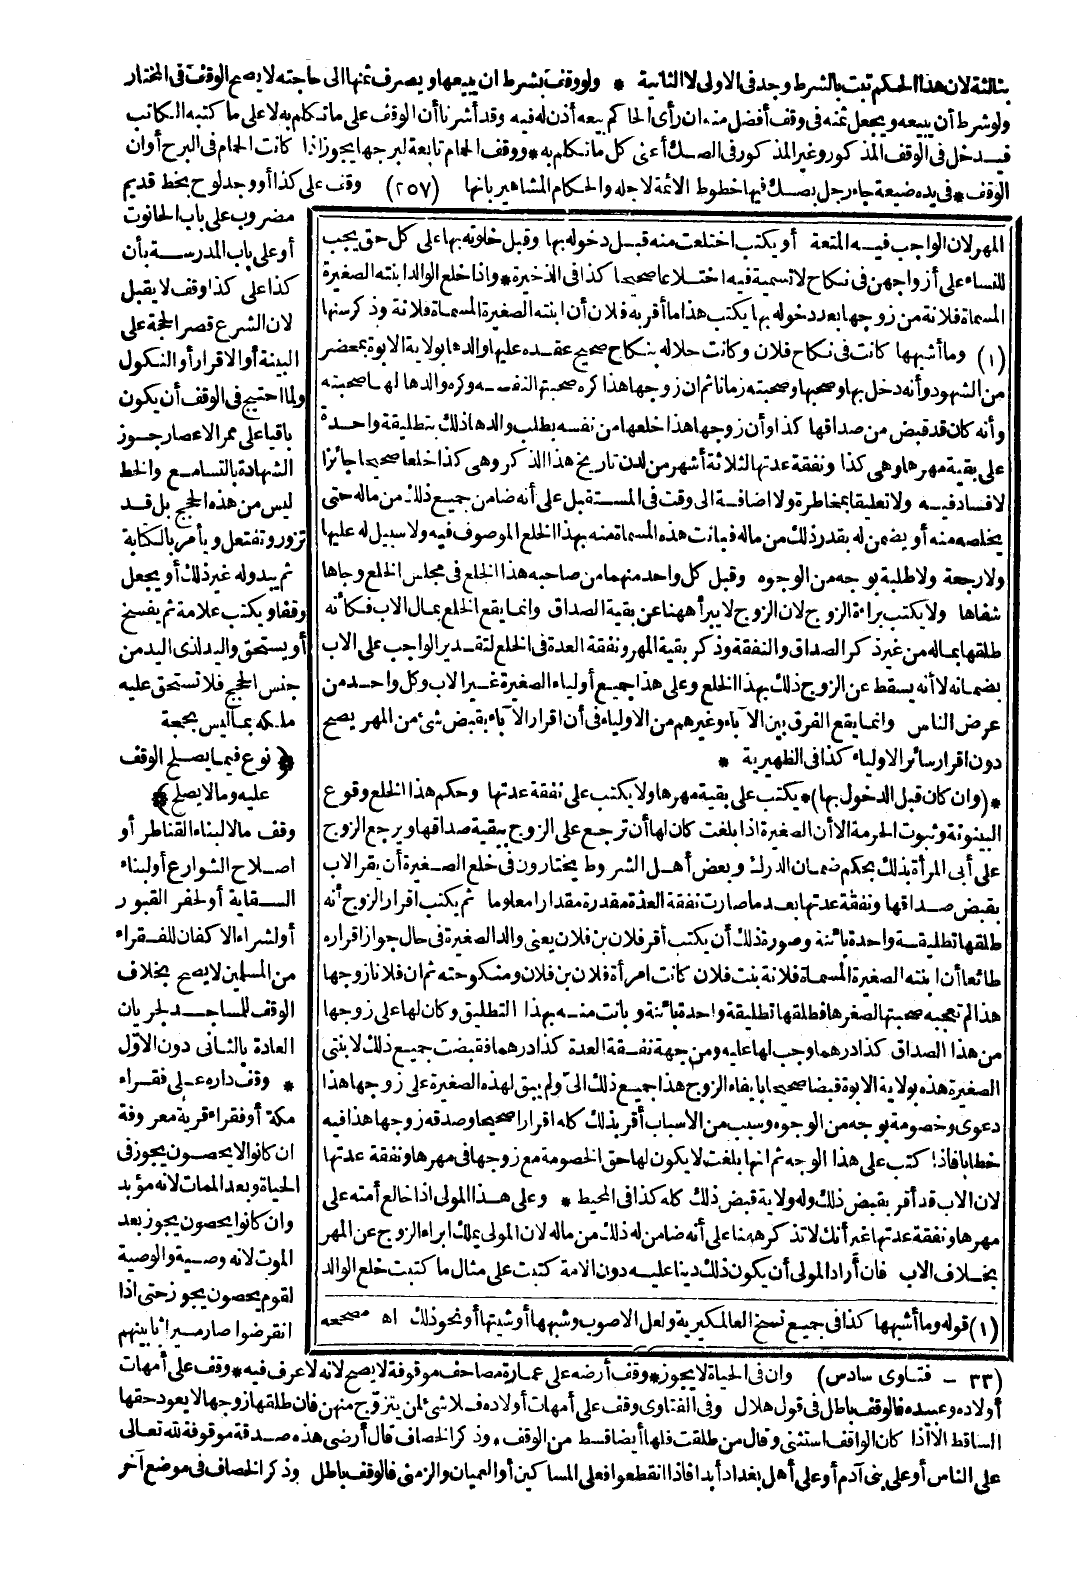 بثالثة لان هذا الحكم ثبت بالشرط وجد فى الاولى لا الثانية * ولو وقف بشرط ان يبيعها ويصرف ثمنها الى حاجته لا يصح الوقف فى المختار
ولو شرط أن يبيعه ويجعل ثمنه فى وقف أفضل منه ان رأى الحاكم بيعه أذن له فيه وقد أشرنا أن الوقف على ما تكلم به لا على ما كتبه الكاتب
فيدخل فى الوقف المذكور وغير المذكور فى الصك أعنى كل ما تكلم به * ووقف الحمام تابعة لبرجها يجوز اذا كانت الحمام فى البرج أوان
الوقف * فى يده ضيعة جاء رجل بصك فيها خطوط الائمة لاجله والحكام المشاهير بانها (٢٥٧) وقف على كذا أو وجد لوح بخط قديم
مضروب على باب الحانوت
أو على باب المدرسة بأن
كذا على كذا وقف لا يقبل
لان الشرع قصر الحجة على
البينة أو الاقرار أو النكول
ولما احتيج فى الوقف أن يكون
باقيا على ممر الاعصار جوز
الشهادة بالتسامع والخط
ليس من هذه الحجج بل قد
تزور وتفتعل ويأمر بالكتابة
ثم يبدو له غير ذلك أو يجعل
وقفا ويكتب علامة ثم يفسخ
أو يستحق واليد لذى اليد من
جنس الحجج فلا تستحق عليه
ملكه بما ليس بحجة
﴿ نوع فيما يصلح الوقف
عليه وما لا يصلح ﴾
وقف مالا لبناء القناطر أو
اصلاح الشوارع أو لبناء
السقاية أو لحفر القبور
أو لشراء الاكفان للفقراء
من المسلمين لا يصح بخلاف
الوقف للمساجد لجريان
العادة بالثانى دون الاول
* وقف داره على فقراء
مكة أو فقراء قرية معروفة
ان كانوا لا يحصون يجوز فى
الحياة وبعد الممات لانه مؤبد
وان كانوا يحصون يجوز بعد
الموت لانه وصية والوصية
لقوم يحصون يجوز حتى اذا
انقرضوا صار ميراثا بينهم
المهر لان الواجب فيه المتعة أو يكتب اختلعت منه قبل دخوله بها وقبل خلوته بها على كل حق يجب
للنساء على أزواجهن فى نكاح لا تسمية فيه اختلاعا صحيحا كذا فى الذخيرة * واذا خلع الوالد ابنته الصغيرة
المسماة فلانة من زوجها بعد دخوله بها يكتب هذا ما أقر به فلان أن ابنته الصغيرة المسماة فلانة وذكر سنها
(١) وما أشبهها كانت فى نكاح فلان وكانت حلاله بنكاح صحيح عقده عليها والدها بولاية الابوة بمحضر
من الشهود وأنه دخل بها وصحبها وصحبته زمانا ثم ان زوجها هذا كره صحبتها لنفسه وكره والدها لها صحبته
وأنه كان قد قبض من صداقها كذا وأن زوجها هذا خلعها من نفسه بطلب والدها ذلك بتطليقة واحدة
على بقية مهرها وهى كذا ونفقة عدتها ثلاثة أشهر من لدن تاريخ هذا الذكر وهى كذا خلعا صحيحا جائزا
لا فساد فيه ولا تعليقا بمخاطرة ولا اضافة الى وقت فى المستقبل على أنه ضامن جميع ذلك من ماله حتى
يخلصه منه أو يضمن له بقدر ذلك من ماله فبانت هذه المسماة منه بهذا الخلع الموصوف فيه ولا سبيل له عليها
ولا رجعة ولا طلبة بوجه من الوجوه وقبل كل واحد منهما من صاحبه هذا الخلع فى مجلس الخلع وجاها
شفاها ولا يكتب براءة الزوج لان الزوج لا يبرأ ههنا عن بقية الصداق وانما يقع الخلع بمال الاب فكأنه
طلقها بماله من غير ذكر الصداق والنفقة وذكر بقية المهر ونفقة العدة فى الخلع لتقدير الواجب على الاب
بضمانه لا أنه يسقط عن الزوج ذلك بهذا الخلع وعلى هذا جميع أولياء الصغيرة غير الاب وكل واحد من
عرض الناس وانما يقع الفرق بين الآباء وغيرهم من الاولياء فى أن اقرار الآباء بقبض شئ من المهر يصح
دون اقرار سائر الاولياء كذا فى الظهيرية *
* (وان كان قبل الدخول بها) * يكتب على بقية مهرها ولا يكتب على نفقة عدتها وحكم هذا الخلع وقوع
البينونة وثبوت الحرمة الا أن الصغيرة اذا بلغت كان لها أن ترجع على الزوج ببقية صداقها ويرجع الزوج
على أبى المرأة بذلك بحكم ضمان الدرك وبعض أهل الشروط يختارون فى خلع الصغيرة أن يقر الاب
بقبض صداقها ونفقة عدتها بعد ما صارت نفقة العدة مقدرة مقدارا معلوما ثم يكتب اقرار الزوج أنه
طلقها تطليقة واحدة بائنة وصورة ذلك أن يكتب أقر فلان بن فلان يعنى والد الصغيرة فى حال جواز اقراره
طائعا أن ابنته الصغيرة المسماة فلانة بنت فلان كانت امرأة فلان بن فلان ومنكوحته ثم ان فلانا زوجها
هذا لم تعجبه صحبتها لصغرها فطلقها تطليقة واحدة بائنة وبانت منه بهذا التطليق وكان لها على زوجها
من هذا الصداق كذا درهما وجب لها عليه ومن جهة نفقة العدة كذا درهما فقبضت جميع ذلك لابنتى
الصغيرة هذه بولاية الابوة قبضا صحيحا بايفاء الزوج هذا جميع ذلك الىّ ولم يبق لهذه الصغيرة على زوجها هذا
دعوى وخصومة بوجه من الوجوه وسبب من الأسباب أقر بذلك كله اقرارا صحيحا وصدقه زوجها هذا فيه
خطابا فاذا كتب على هذا الوجه ثم انها بلغت لا يكون لها حق الخصومة مع زوجها فى مهرها ونفقة عدتها
لان الاب قد أقر بقبض ذلك وله ولاية قبض ذلك كله كذا فى المحيط * وعلى هذا المولى اذا خالع أمته على
مهرها ونفقة عدتها غير أنك لا تذكر ههنا على أنه ضامن له ذلك من ماله لان المولى يملك ابراء الزوج عن المهر
بخلاف الاب فان أراد المولى أن يكون ذلك دينا عليه دون الامة كتبت على مثال ما كتبت خلع الوالد
(١) قوله وما أشبهها كذا فى جميع نسخ العالمكيرية ولعل الاصوب وشبهها أو شيتها أو نحو ذلك اه مصححه
(٣٣ - فتاوى سادس) وان فى الحياة لا يجوز * وقف أرضه على عمارة مصاحف موقوفة لا يصح لانه لا عرف فيه * وقف على أمهات
أولاده وعبيده فالوقف باطل فى قول هلال وفى الفتاوى وقف على أمهات أولاده فلا شئ لمن يتزوج منهن فان طلقها زوجها لا يعود حقها
الساقط الا اذا كان الواقف استثنى وقال من طلقت فلها أيضا قسط من الوقف * وذكر الخصاف قال أرضى هذه صدقة موقوفة لله تعالى
على الناس أو على بنى آدم أو على أهل بغداد أبدا فاذا انقطعوا فعلى المساكين أو العميان والزمنى فالوقف باطل وذكر الخصاف فى موضع آخر